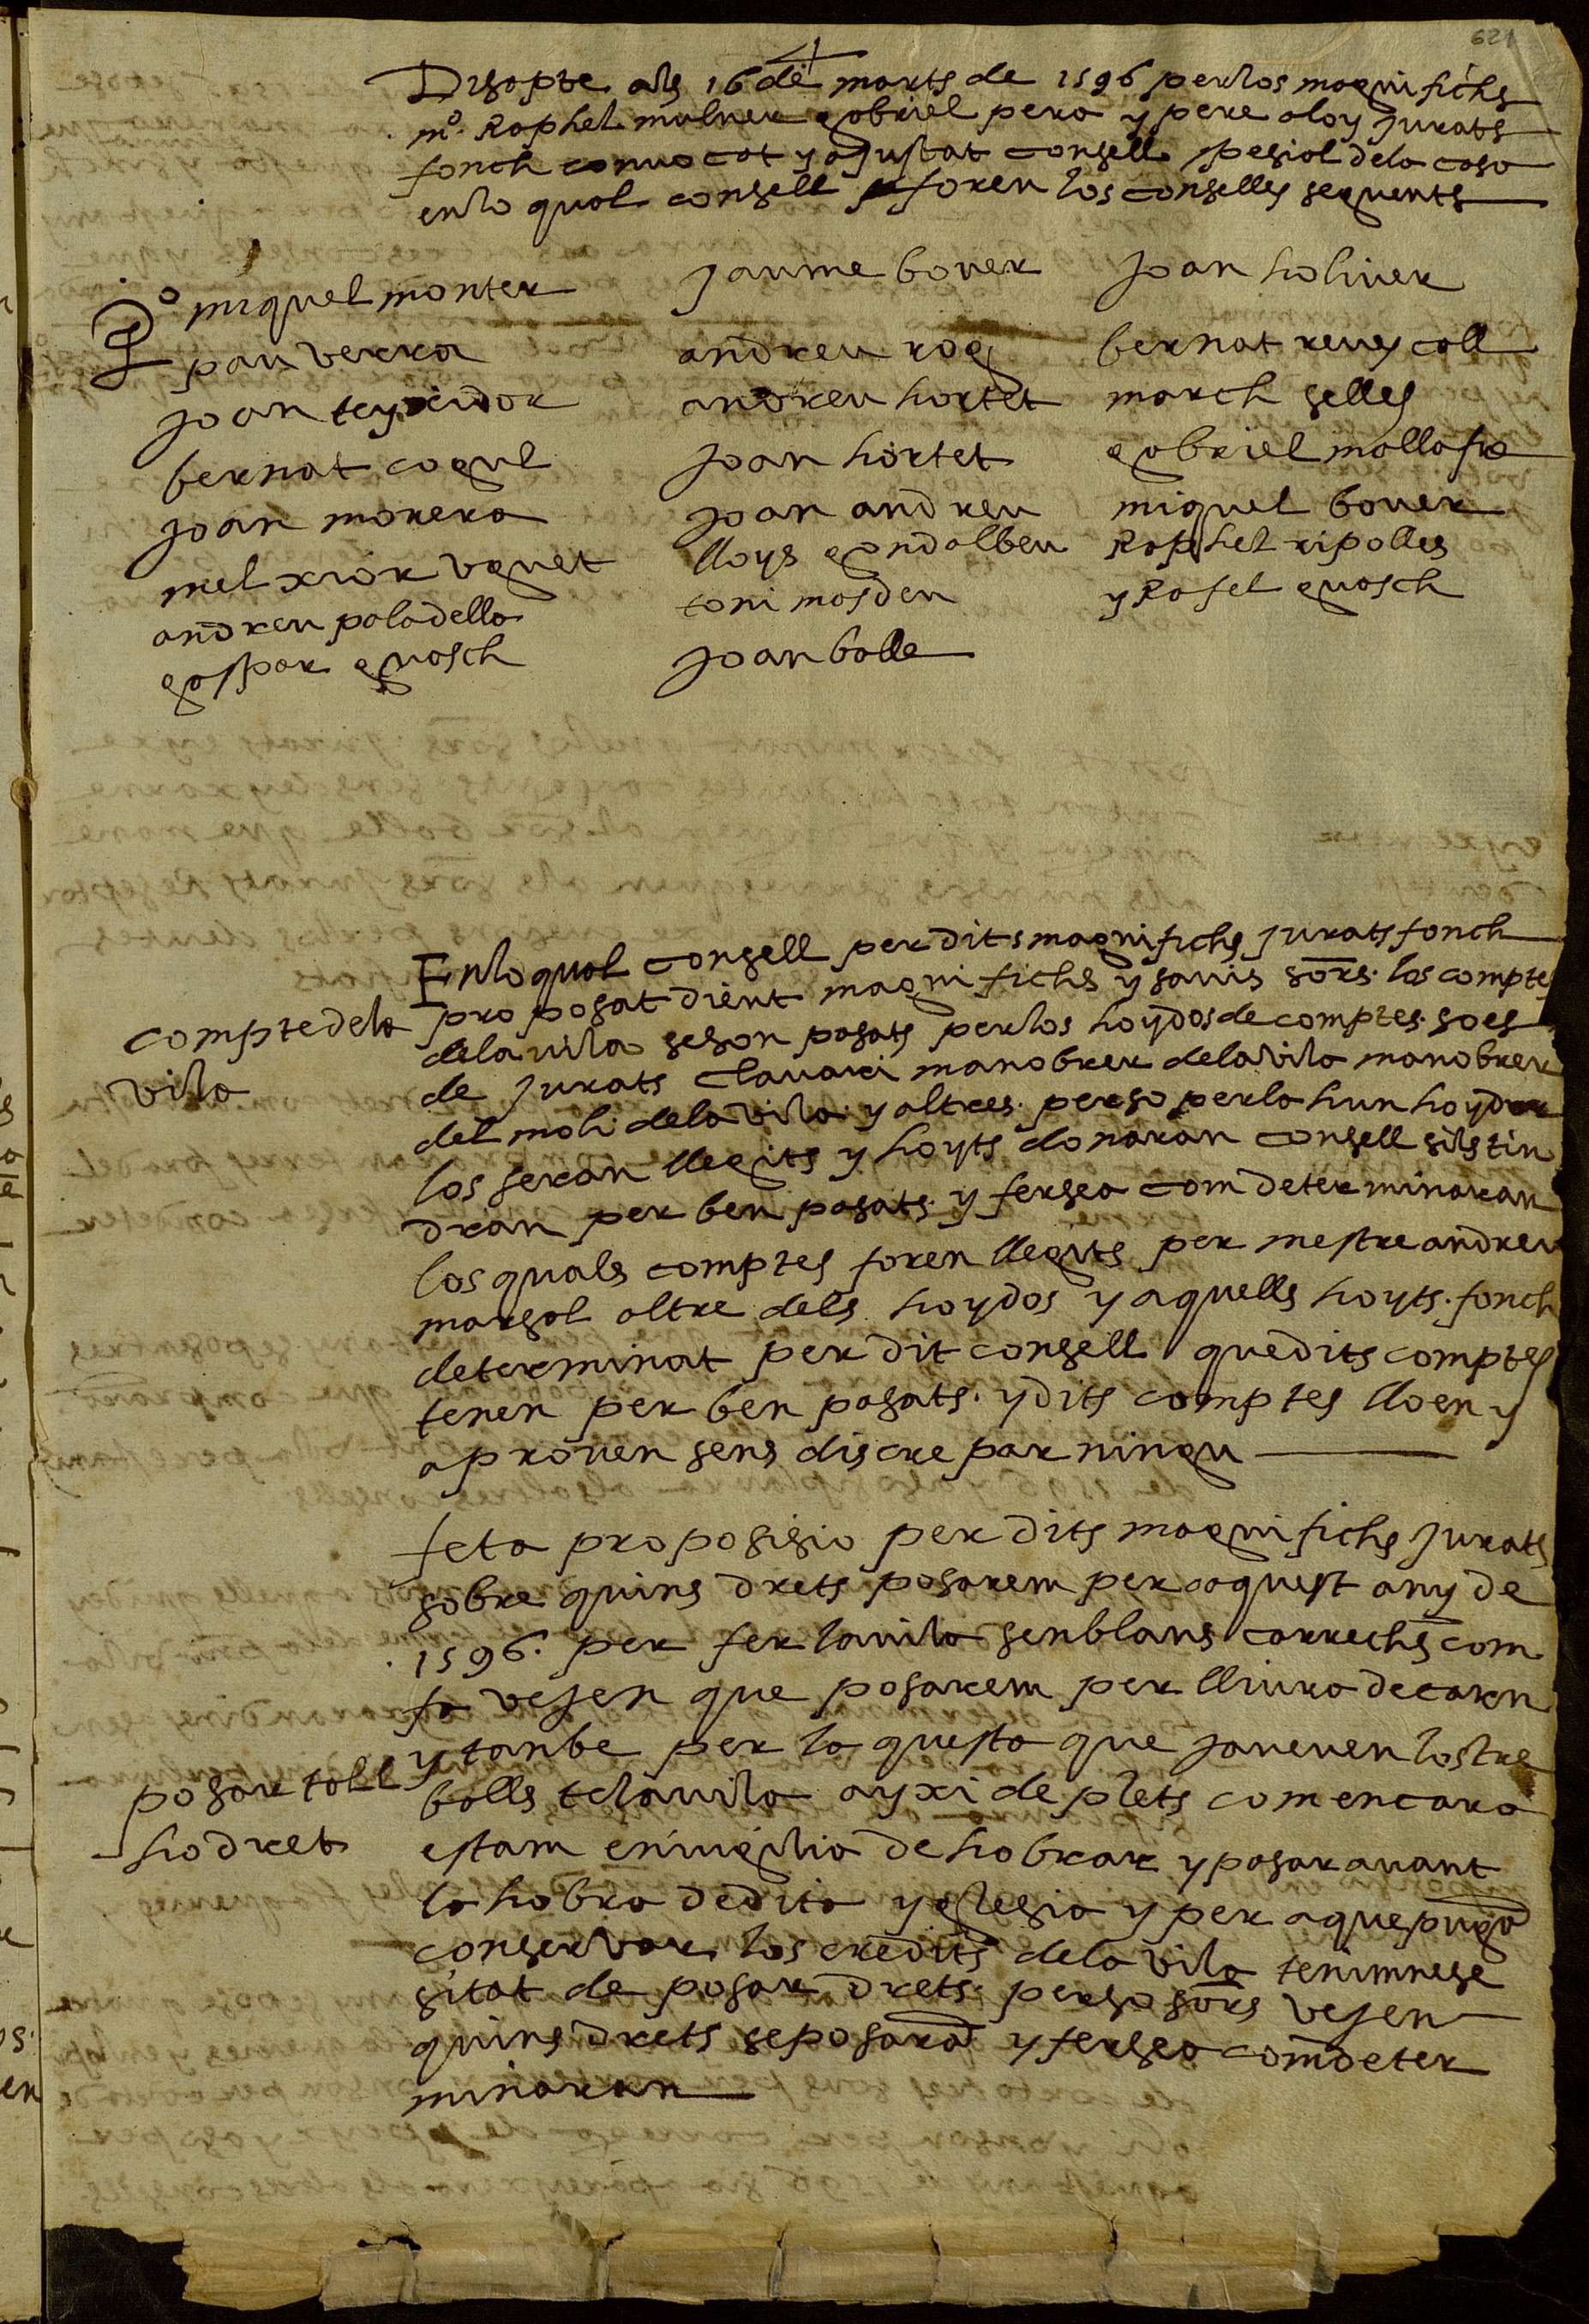 621
Disapte als 16 de marts de 1596 perlos magnifichs
mº. Raphel mulner gabriel pera y pere aloy Jurats
fonch conuocat y ajustat consell spesial dela casa
enlo qual consell foren los conselles seguents
Pº miquel monter
pau verra
joan teyxidor
bernat cogul
joan morera
melxior vguet
andreu paladella
gaspar guasch
Jaume bouer
andreu rog
andreu hortet
joan hortet
joan andreu
lloys gondalbeu
toni masdeu
joan balle
joan holiuer
bernat reuescoll
march selles
gabriel mallafre
miquel bouer
Raphel ripolles
y Rafel guasch
Enloqual consell per dits magnifichs jurats fonch
proposat dient magnifichs y sauis sors. los comptes
compte dela
vila
dela vila seson pasats perlos hoydos de comptes. soes
de jurats clauari manobrer dela vila manobrer
del moli dela vila. y altres. perso perla hun hoydor
los seran llegits y hoyts donaran consell sils tin
dran per ben pasats. y fersea com determinaran
los quals comptes foren llegits per mestre andreu
marsal altre dels hoydos y aquells hoyts. fonch
determinat per dit consell que dits comptes
tenen per ben pasats. y dits comptes lloen y
aprouen sens discrepar ningu
feta proposisio per dits magnifichs jurats
sobre quins drets posarem per aquest any de
1596. per fer la vila senblans carrechs com
fa vejen que posarem per lliura de carn
y tanbe per la questa que ja veuen los tre
posar tall
ho dret
balls te la vila ayxi de plets com encara
estam en vigilia de hobrar y posar auant
la hobra de dita yglesia y per a que puga
conseruar los credits dela vila tenim nese
sitat de posar drets. perso sors vejen
quins drets se posara y fersea com deter
minaran